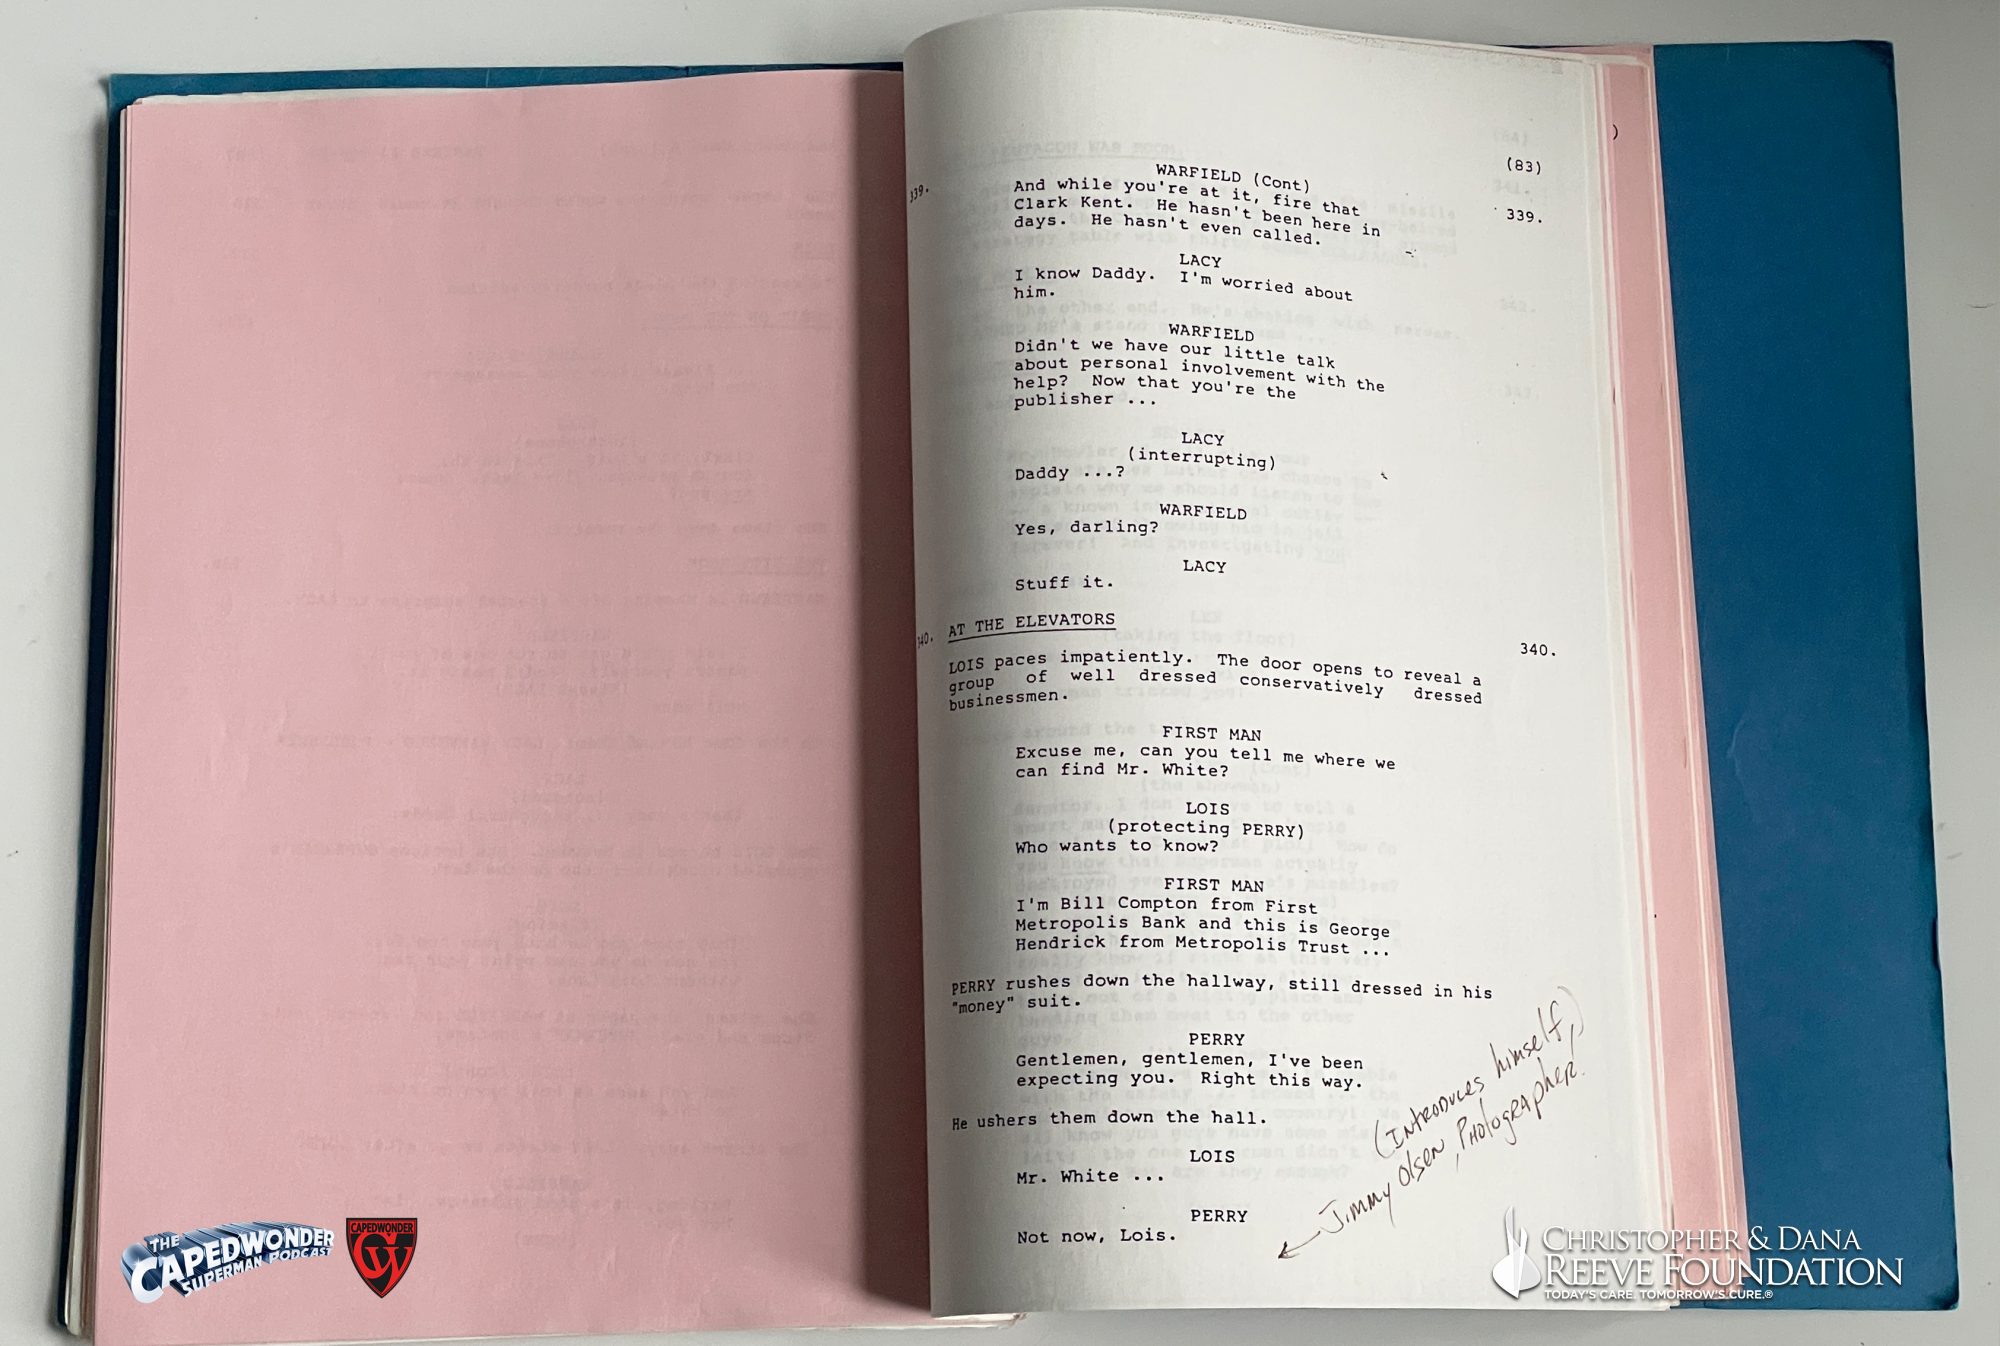 (83)
WARFIELD (Cont)
339. And while you're at it, fire that 339.
Clark Kent.  He hasn't been here in
days.  He hasn't even called.
LACY
I know Daddy.  I'm worried about
him.
WARFIELD
Didn't we have our little talk
about personal involvement with the
help?  Now that you're the
publisher ...
LACY
(interrupting)
Daddy ...?
WARFIELD
Yes, darling?
LACY
Stuff it.
340. AT THE ELEVATORS 340.
LOIS paces impatiently.  The door opens to reveal a
group of well dressed conservatively dressed
businessmen.
FIRST MAN
Excuse me, can you tell me where we
can find Mr. White?
LOIS
(protecting PERRY)
Who wants to know?
FIRST MAN
I'm Bill Compton from First
Metropolis Bank and this is George
Hendrick from Metropolis Trust ...
PERRY rushes down the hallway, still dressed in his
"money" suit.
PERRY
Gentlemen, gentlemen, I've been
expecting you.  Right this way.
He ushers them down the hall.
LOIS
Mr. White ...
PERRY
Not now, Lois.
(Introduces himself,)
Jimmy Olsen, Photographer.
THE
CAPEDWONDER
SUPERMAN PODCAST
CAPEDWONDER
CW
CHRISTOPHER & DANA
REEVE FOUNDATION
TODAY'S CARE. TOMORROW'S CURE.®